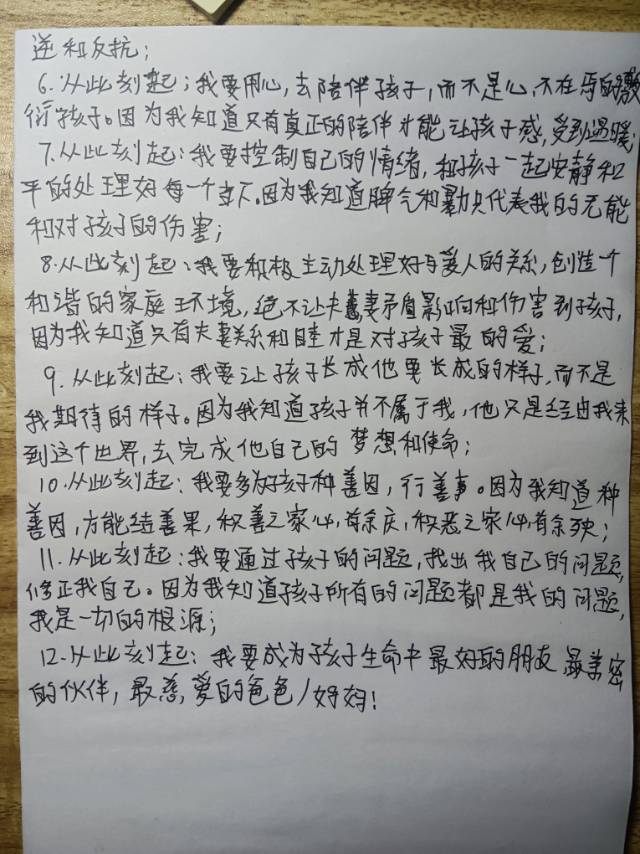 逆和反抗；
6.从此刻起；我要用心，去陪伴孩子，而不是心不在焉的敷
衍孩子。因为我知道只有真正的陪伴才能让孩子感，受到温暖
7.从此刻起：我要控制自己的情绪，和孩子一起安静和
平的处理好每一个当下。因为我知道脾气和暴力只代表我的无能
和对孩子的伤害；
8.从此刻起：我要积极主动处理好与爱人的关系，创造一个
和谐的家庭环境，绝不让夫妻矛盾影响和伤害到孩子，
因为我知道只有夫妻关系和睦才是对孩子最的爱；
9.从此刻起：我要让孩子长成他要长成的样子，而不是
我期待的样子。因为我知道孩子并不属于我，他只是经由我来
到这个世界，去完成他自己的梦想和使命；
10.从此刻起：我要多为孩子种善因，行善事。因为我知道种
善因，方能结善果，积善之家必，有余庆，积恶之家必，有余殃；
11.从此刻起：我要通过孩子的问题，找出我自己的问题，
修正我自己。因为我知道孩子所有的问题都是我的问题，
我是一切的根源；
12.从此刻起：我要成为孩子生命中最好的朋友 最亲密
的伙伴，最慈，爱的爸爸/妈妈！